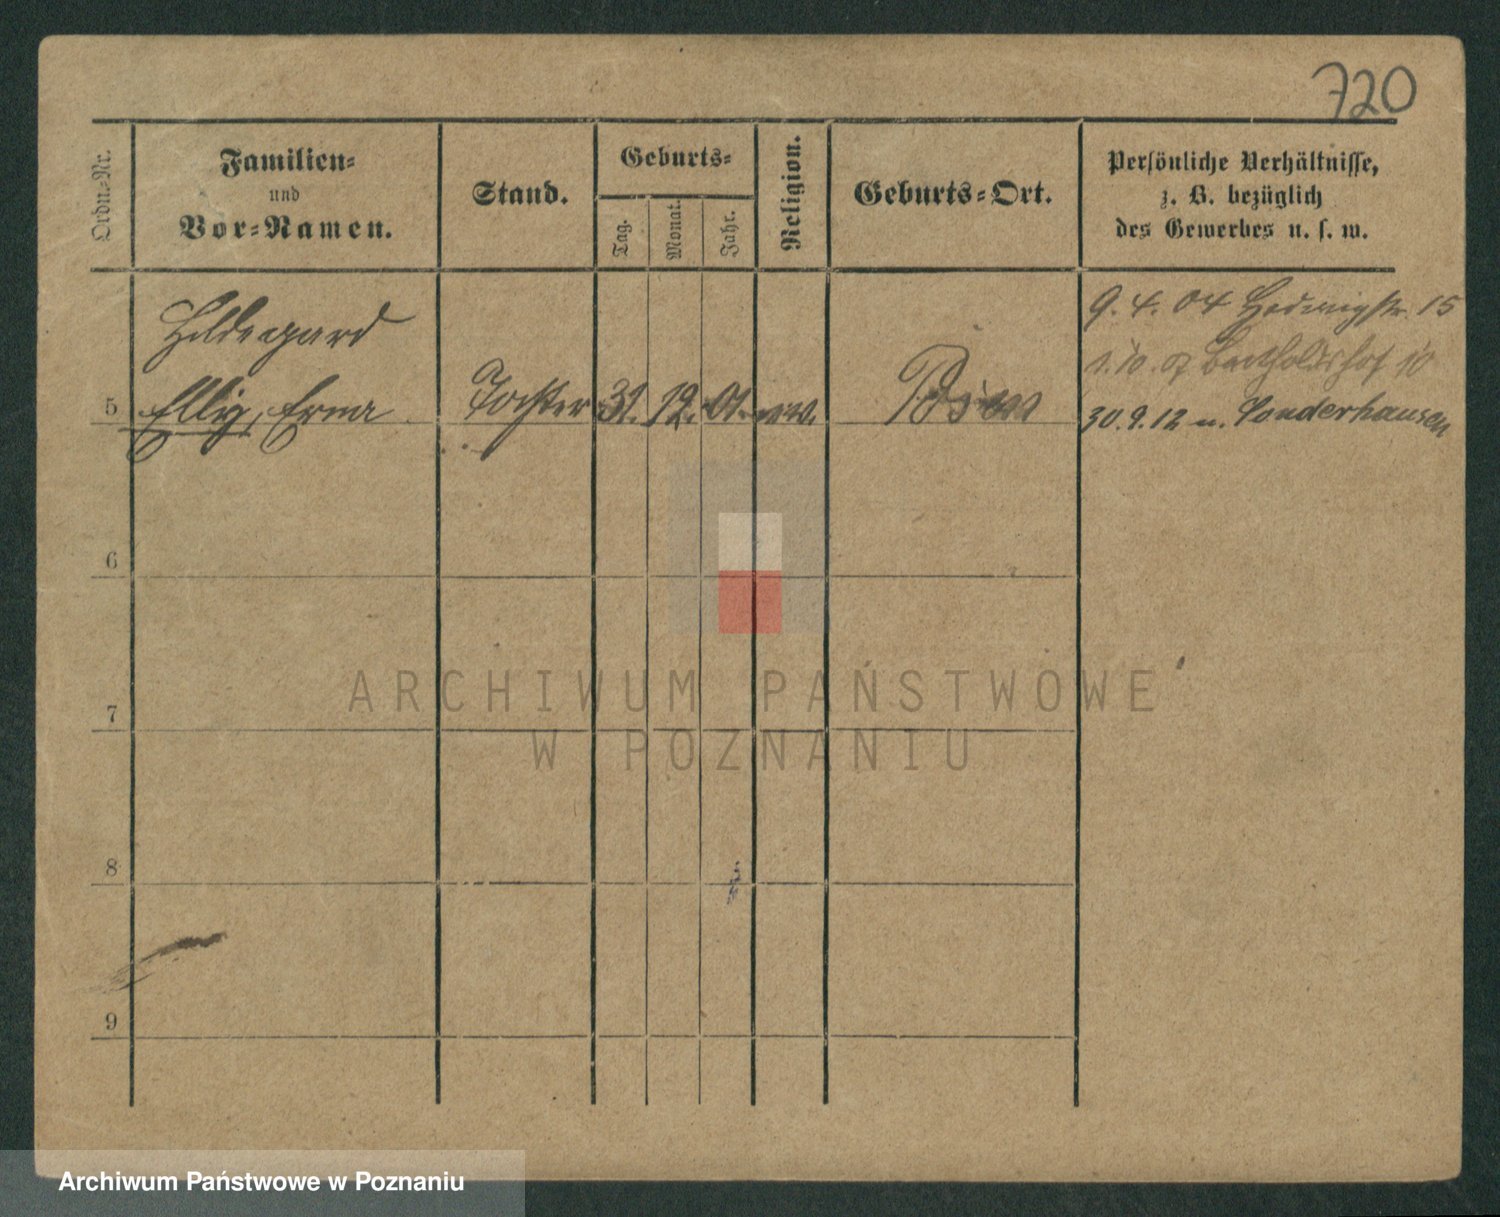 720
Ordn.-Nr.
Familien-
und
Vor-Namen.
Stand.
Geburts-
Tag.
Monat.
Jahr.
Religion.
Geburts-Ort.
Persönliche Verhältnisse,
z. B. bezüglich
des Gewerbes u. s. w.
Hildegard
5 Elly, Erna Tochter 31. 12. 01.
9. 4. 04 Hedwigstr. 15
1. 10. 07 Bartholdshof 10
30. 9. 12 n. Sonderhausen
6
7
8
9
ARCHIWUM PAŃSTWOWE
W POZNANIU
Archiwum Państwowe w Poznaniu